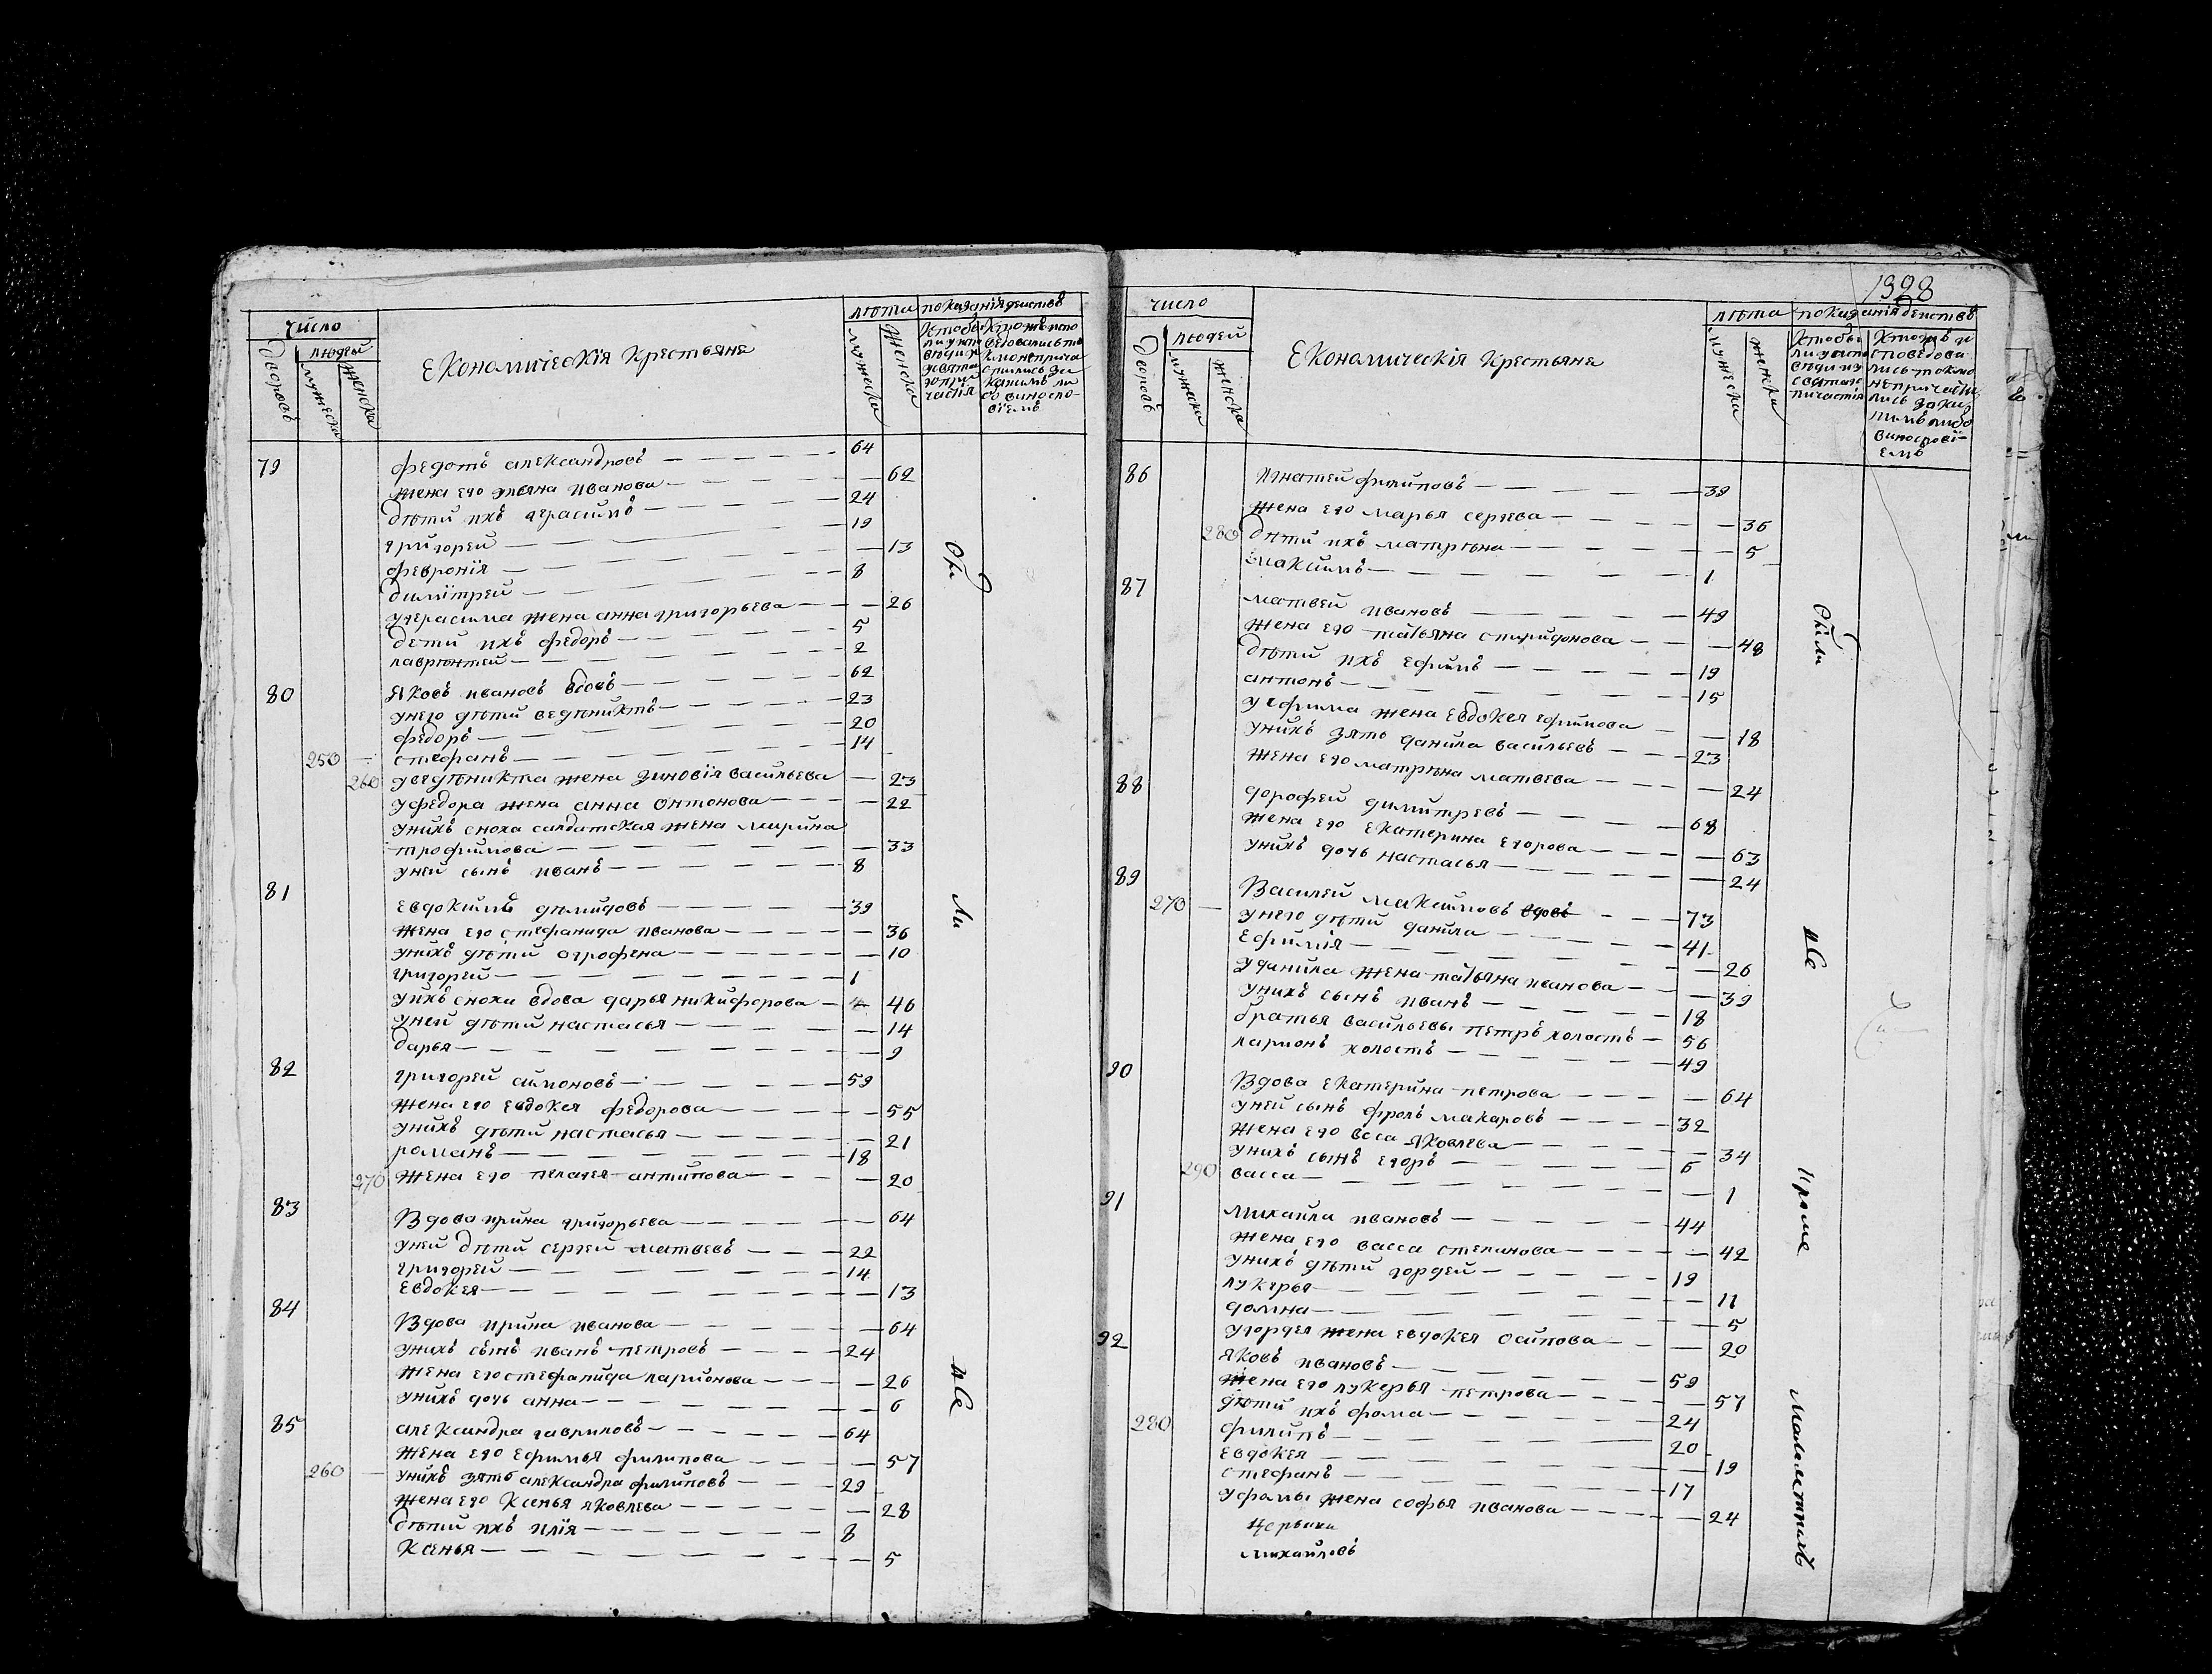 число
людей
дворовъ
мужеска
женска
Економическїя Крестьяне
лѣта
мужеска
женска
показанїя действъ
79 федотъ александровъ — 64
жена его ульяна иванова — 62
дѣти ихъ герасимъ — 24
григорей — 19
феврониїя — 13
димитрей — 8
угерасима жена анна григорьева — 26
дети ихъ федоръ — 5
лаврѣнтей — 2
80 Яковъ ивановъ вдовъ — 62
унего дѣти ведѣниктъ — 23
федоръ — 20
250 — стефанъ — 14
260 уведѣникта жена зиновїя васильева — 23
уфедора жена анна онтонова — 22
унихъ сноха салдатская жена марина
трофимова — 33
уней сынъ иванъ — 8
81 Евдокимъ дѣмидовъ — 39
жена его стефанида иванова — 36
унихъ дѣти огрофена — 10
григорей — 1
унхъ сноха вдова дарья никифорова — 46
уней дѣти настасья — 14
дарья — 9
82 григорей симоновъ — 59
жена его Евдокея федорова — 55
унихъ дѣти настасья — 21
романъ — 18
270 жена его пелагея антипова — 20
83 Вдова ирина григорьева — 64
уней дѣти сергей матвевъ — 22
григорей — 14
Евдокея — 13
84 Вдова ирина иванова — 64
унихъ сынъ иванъ петровъ — 24
жена его стефанида ларионова — 26
унихъ дочь анна — 6
85 александра гавриловъ — 64
жена его Ефимья филипова — 57
260 — унихъ зять александра филиповъ — 29
жена его Ксенья яковлева — 28
дѣти ихъ илїя — 8
Ксенья — 5
Бы
ли
все
1398
число
людей
дворовъ
мужеска
женска
Економическїя Крестьяне
лѣта
мужеска
женска
показанїя действъ
86 Игнатей филиповъ — 39
жена его марья сергева — 36
280 дѣти ихъ матрѣна — 5
максимъ — 1
87 матвей ивановъ — 49
жена его татьяна спиридонова — 48
дѣти ихъ Ефимъ — 19
антонъ — 15
уефима жена Евдокея Ефимова — 18
унихъ зять данила васильевъ — 23
жена его матрѣна матвева — 24
88 дорофей димитревъ — 68
жена его Екатерина Егорова — 63
унихъ дочь настасья — 24
89 270 — Василей максимовъ вдовъ — 73
унего дѣти данила — 41
Ефимїя — 26
уданила жена татьяна иванова — 39
унихъ сынъ иванъ — 18
братья васильевы петръ холостъ — 56
ларионъ холостъ — 49
90 Вдова Екатерина петрова — 64
уней сынъ фролъ макаровъ — 32
жена его васа яковлева — 34
унихъ сынъ Егоръ — 6
290 васса — 1
91 михаила ивановъ — 44
жена его васса степанова — 42
унихъ дѣти гордей — 19
лукерья — 11
домна — 5
угордея жена Евдокея осипова — 20
92 яковъ ивановъ — 59
жена его лукерья петрова — 57
дѣти ихъ фома — 24
280 филипъ — 20
Евдокея — 19
стефанъ — 17
уфомы жена софья иванова — 24
михайловъ
были
все
Кроме
малолетнихъ